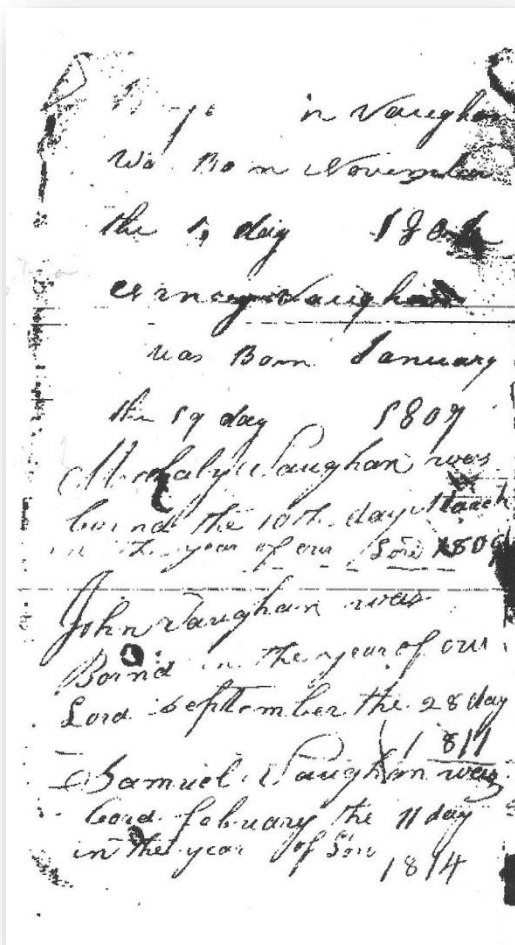 in Vaughan
Wa Born November
the day
Vaughan
was Born January
the 19 day 1807
Vaughan was
bornd the 10th day March
in the year of our Lord 1809
John Vaughan was
Bornd in the year of our
Lord September the 28 day
1811
Samuel Vaughan was
febuary the 11 day
in the year of Lord
1814